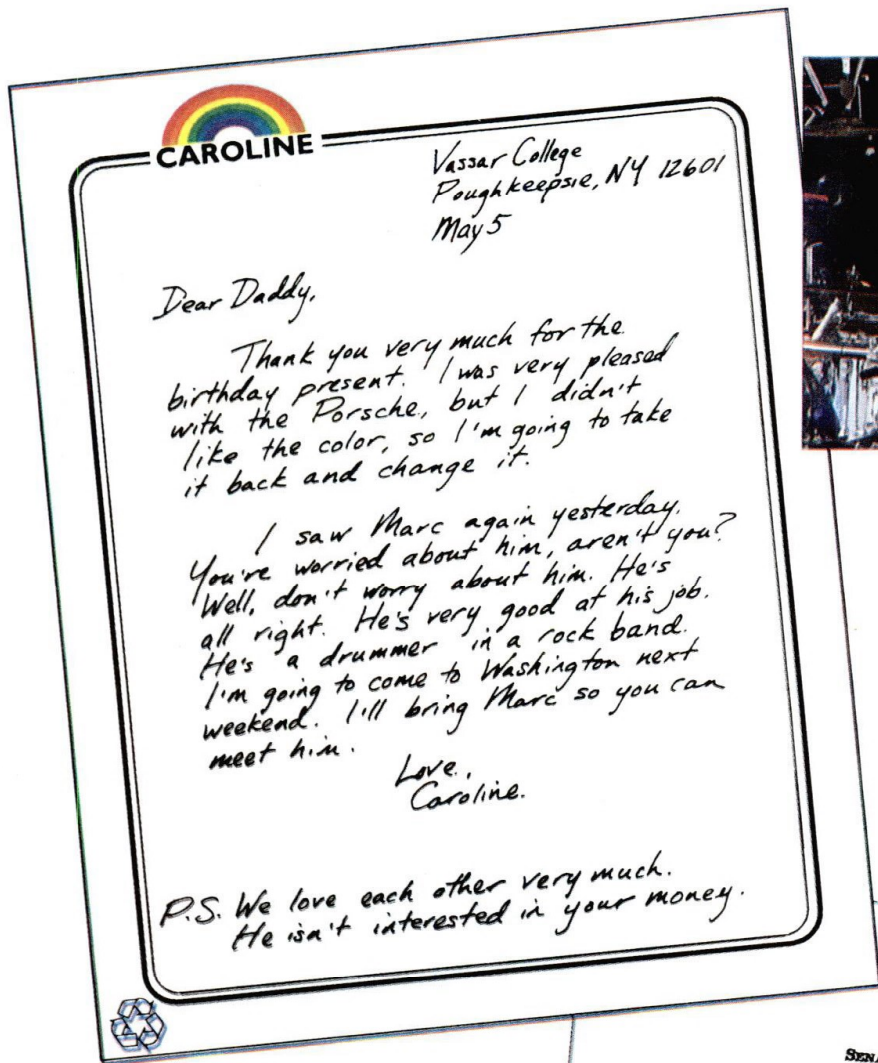 CAROLINE
Vassar College
Poughkeepsie, NY 12601
May 5
Dear Daddy,
Thank you very much for the
birthday present. I was very pleased
with the Porsche, but I didn't
like the color, so I'm going to take
it back and change it.
I saw Marc again yesterday.
You're worried about him, aren't you?
Well, don't worry about him. He's
all right. He's very good at his job.
He's a drummer in a rock band.
I'm going to come to Washington next
weekend. I'll bring Marc so you can
meet him.
Love,
Caroline.
P.S. We love each other very much.
He isn't interested in your money.